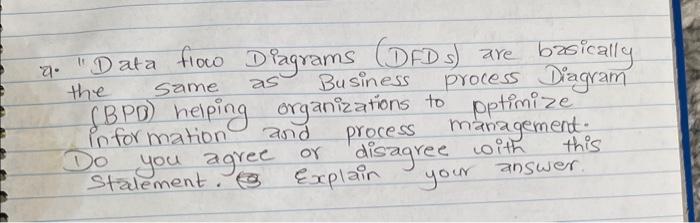 a. "Data flow Diagrams (DFDs) are basically
the same as Business process Diagram
(BPD) helping organizations to optimize
information and process management.
Do you agree or disagree with this
Statement. Explain your answer.